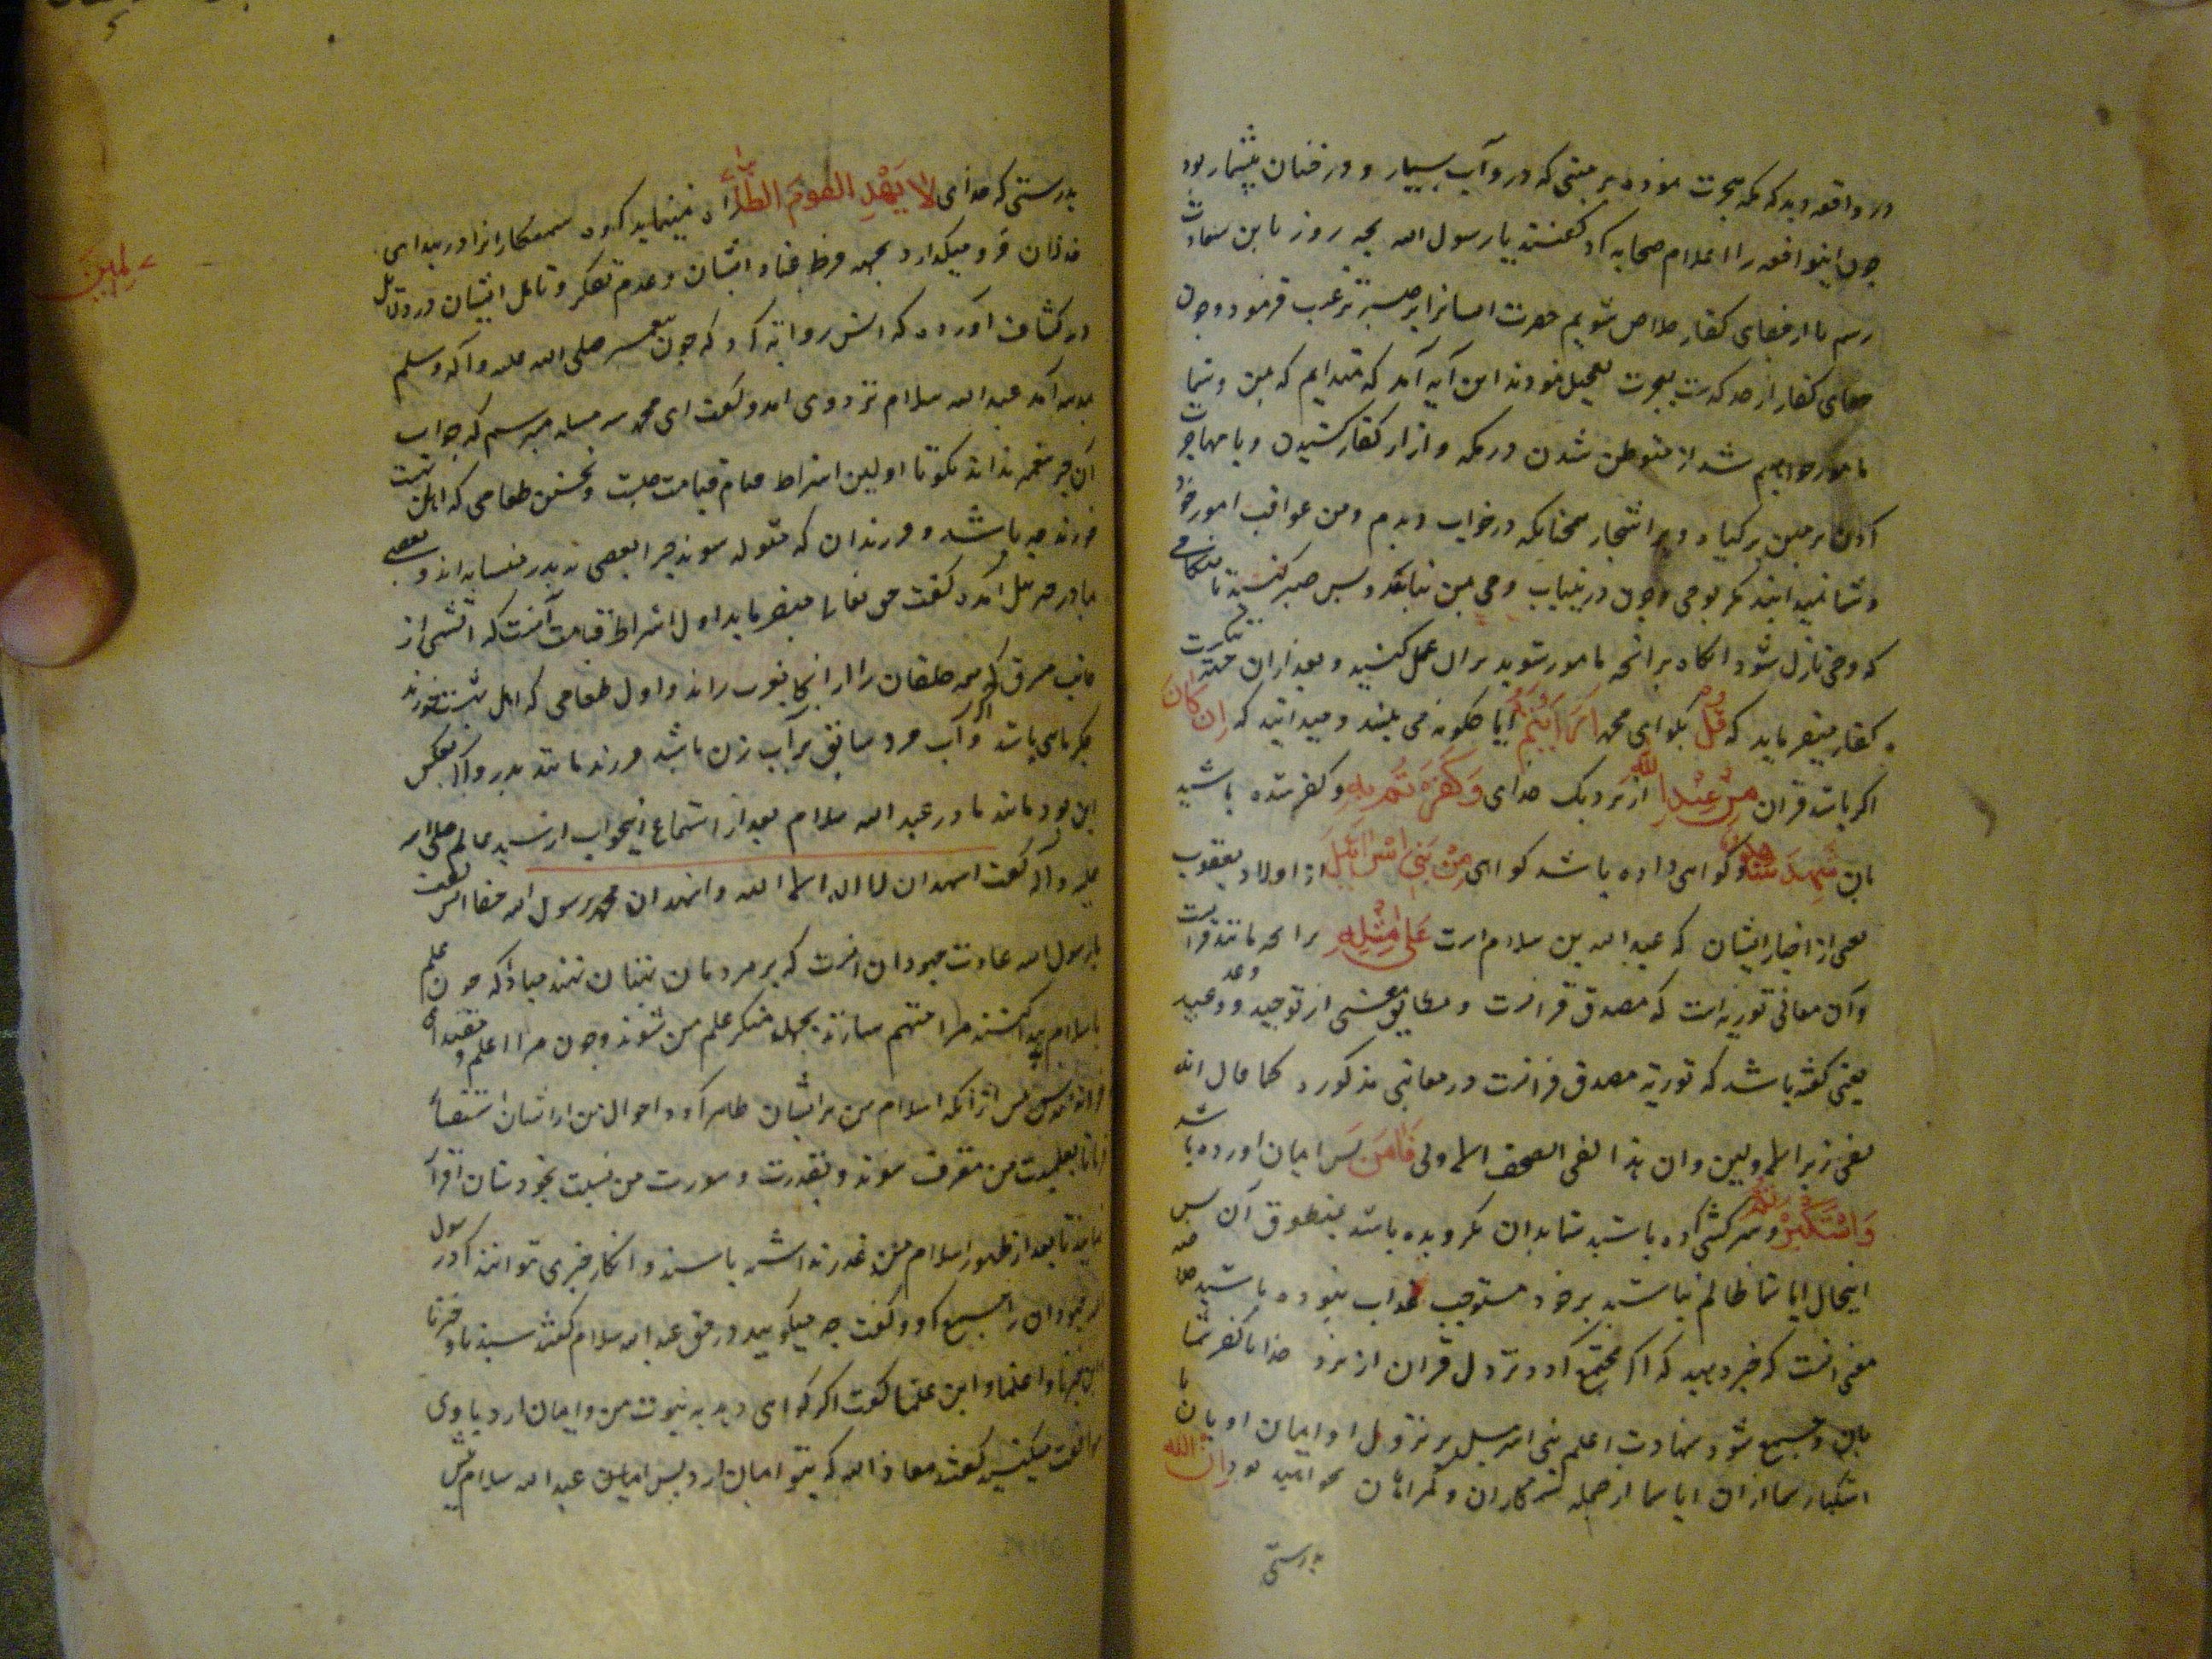 در واقعه دید که مکه هجرت نموده بر زمینی که در و آب بسیار و درختان بیشمار بود
چون اینواقعه را اعلام صحابه کرد گفتند یا رسول الله بچه روز ما باین سعادت
رسیم تا از جفای کفار خلاص شویم حضرت ایشانرا بر صبر ترغیب فرمود و چون
جفای کفار از حد گذشت بهجرت تعجیل نمودند این آیه آمد که نمیدانم که بمن و شما
مامور خواهیم شد از متوطن شدن در مکه و ازار کفار کشیدن و یا مهاجرت
کردن بر زمین پر کیاه و پر اشجار همچنانکه در خواب دیدم و من عواقب امور خود
و شما نمیدانند مکر بوحی و چون درینباب وحی بمن نیامده پس صبر کنید تا هنگامی
که وحی نازل شود آنکاه بر آنچه مامور شوید بر آن عمل کنید و بعد از آن
کفار میفرماید که قُل بکو ای محمد اَرَاَیْتُم آیا چکونه می بینید و میدانید که اِن کَانَ
اکر باشد قران مِنْ عِنْدِ اللّٰه از نزدیک خدای وَ کَفَرْتُم بِهِ و کفر شده باشید
بان وَ شَهِدَ شَاهِدٌ و کواهی داده باشد کواهی مِنْ بَنِی اِسْرَائِیلَ از اولاد یعقوب
یعنی از احبار ایشان که عبد الله بن سلام است عَلَی مِثْلِهِ بر آنچه مانند قرآنست
و آن معانی توریة است که مصدق قرآنست و مطابق معنی از توحید و وعد و وعید
یعنی گفته باشد که توریة مصدق قرانست در معانی مذکوره کما قال انه
لفی زبر الاولین و ان هذا لفی الصحف الاولی فَاٰمَنَ پس ایمان آورده باشد
وَ اسْتَکْبَرْتُم و سرکشی کرده باشید شما بدان نکرویده باشید بمنطوق آن پس
اینحال ایا شما ظالم نباشید بر خود مستوجب عذاب نبوده باشید
معنی آنست که خبر دهید که اکر مجتمع کردد نزول قران از نزد خدا با کفر شما
بان و جمع شود شهادت اعلم بنی اسرائیل بر نزول او و ایمان او بآن با
استکبار شما از آن ایا شما از جمله ستمکاران و کمراهان نخواهید بود اِنَّ اللّٰه
بدرستی
بدرستی که خدای لَا یَهْدِ القَومَ الظَّالِمِینَ راه نمینماید کروه ستمکارانرا و در بیداهی
خذلان فرو میکذارد بجهة فرط عناد ایشان و عدم تفکر و تامل ایشان در دلایل
در کشاف آورده که انس روایة کرد که چون پیغمبر صلی الله علیه و آله و سلم
بمدینه آمد عبد الله سلام نزد وی آمد و گفت ای محمد سه مسئله میپرسم که جواب
آن جز پیغمبر نداند بکو تا اولین اشراط قیامت چیست و نخستین طعامی که اهل بهشت
خورند چه باشد و فرزندان که متولد شوند چرا بعضی به پدر متشابه اند و بعضی
بمادر جبرئیل آمد و گفت حق تعالی میفرماید اول اشراط قیامت آنست که اتشی از
جانب مشرق که همه خلقان را از آنجا بمغرب راند و اول طعامی که اهل بهشت خورند
جکر ماهی باشد و اکر آب مرد سابق بر آب زن باشد فرزند مانند پدر و اکر بعکس
این بود مانند مادر عبد الله سلام بعد از استماع اینجواب از سید عالم صلی الله
علیه و آله گفت اشهد ان لا اله الا الله و اشهد ان محمد رسول الله حقا پس گفت
یا رسول الله عادت جهودان آنست که بر مردمان بهتان نهند مبادا که چون علم
باسلام پیدا کنند مرا متهم سازند بجهل و منکر علم من شوند و چون مرا اعلم و مقتدای
خود دانند پس پیش از آنکه اسلام من بر ایشان ظاهر کردد احوال من از ایشان استفسار
فرما تا بعلمیت من معترف شوند و بقدرت و سورت من نسبت بخودشان اقرار
نمایند تا بعد از ظهور اسلام من عذر نداشته باشند و انکار چیزی نتوانند کرد رسول
جهودان را جمع کرد و گفت چه میکوئید در حق عبد الله سلام گفتند سیدنا و خیرنا
ابن خیرنا و اعلمنا و ابن علمنا گفت اکر کواهی دهد به نبوت من و ایمان آرد با وی
موافقت میکنید گفتند معاذ الله که بتو ایمان آرد پس ایشان عبد الله سلام پیش
لِمِینَ